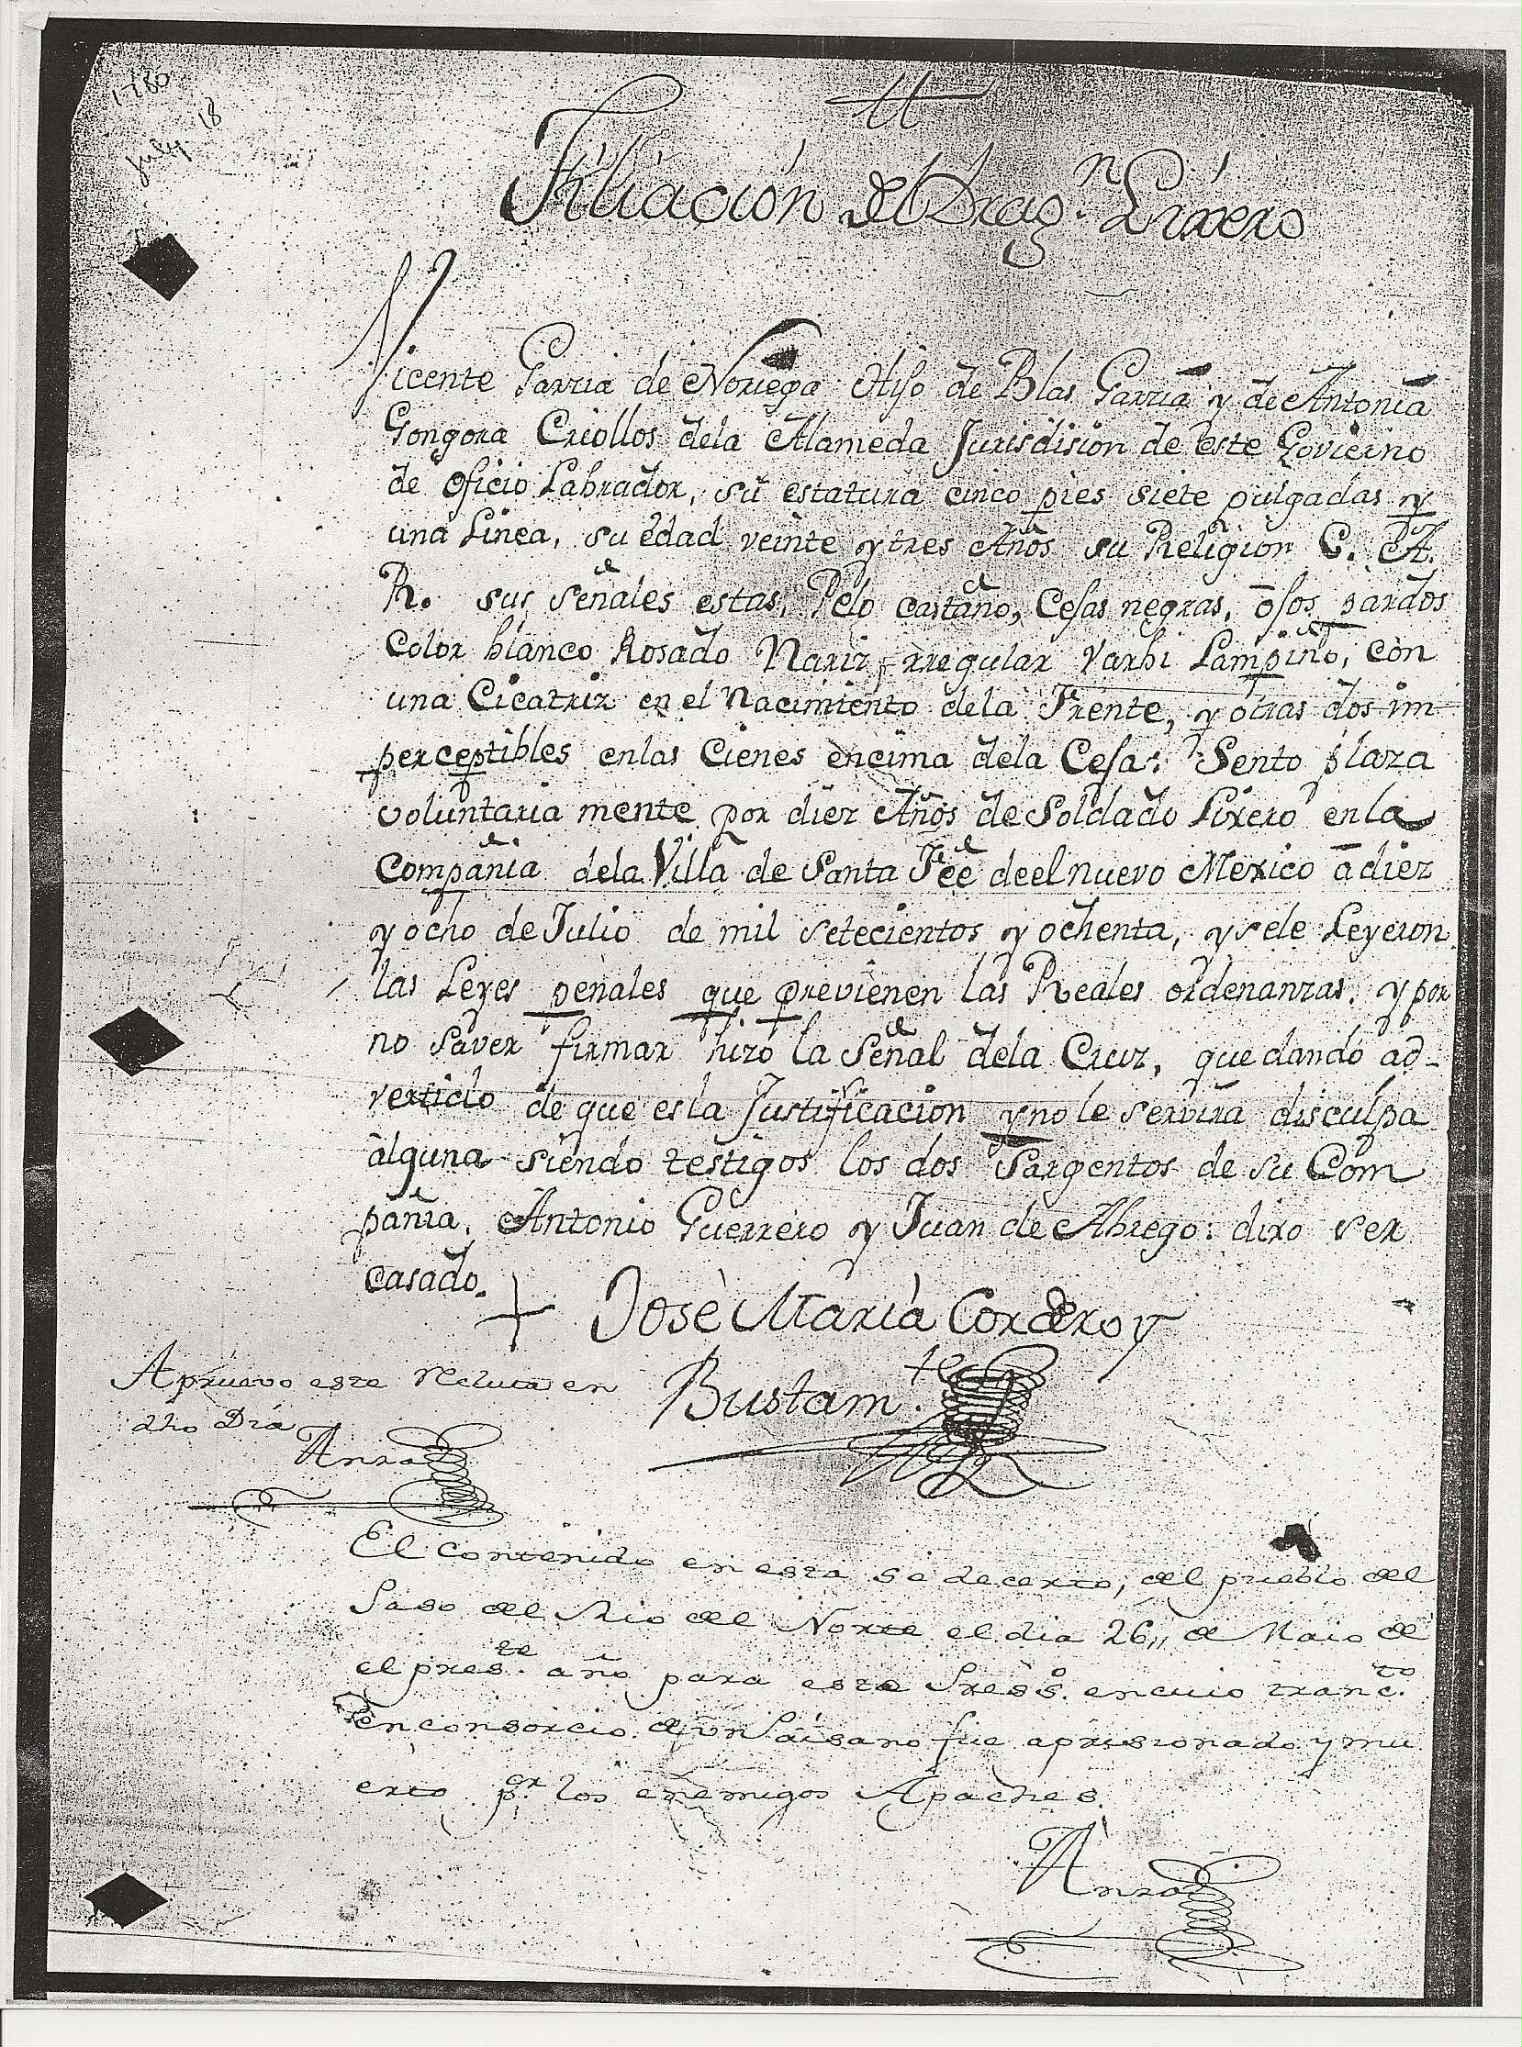 1780
July 18
Filiacion del Drag.n Lixero
Vicente Garzia de Noriega Hijo de Blas Garzia y de Antonia
Gongora Criollos dela Alameda Jurisdision de este Govierno
de oficio Labrador, su estatura cinco pies siete pulgadas y
una Linea, su edad veinte y tres Años su Religion C. A.
R. sus señales estas, Pelo castaño, Cejas negras, ojos pardos
Color blanco Rosado Nariz yrregular Varbi Lampiño, con
una Cicatriz en el Nacimiento dela Frente, y otras dos im
perceptibles enlas Cienes encima dela Ceja: Sento plaza
voluntaria mente por diez Años de Soldado Lixero enla
Compañia dela Villa de Santa Feè deel nuevo Mexico à diez
y ocho de Julio de mil setecientos y ochenta, y sele Leyeron
las Leyes penales que previenen las Reales ordenanzas. y por
no saver firmar hizo la Señal dela Cruz, quedando ad-
vertido de que es la Justificacion y no le servira disculpa
alguna siendo testigos los dos Sargentos de su Com
pañia. Antonio Guerrero y Juan de Abrego: dixo ser
casado.
Josè Maria Cordero y
Bustam.te
Apruevo este Recluta en
dho Dia
Anza
El contenido en esta se decerto, del pueblo del
Paso del Rio del Norte el dia 26,, de Maio de
el pres.te año para este Pres.o en cuio tranc.to
en consorcio de un Paisano fue aprisionado y mu
erto p.or los enemigos Apaches.
Anza